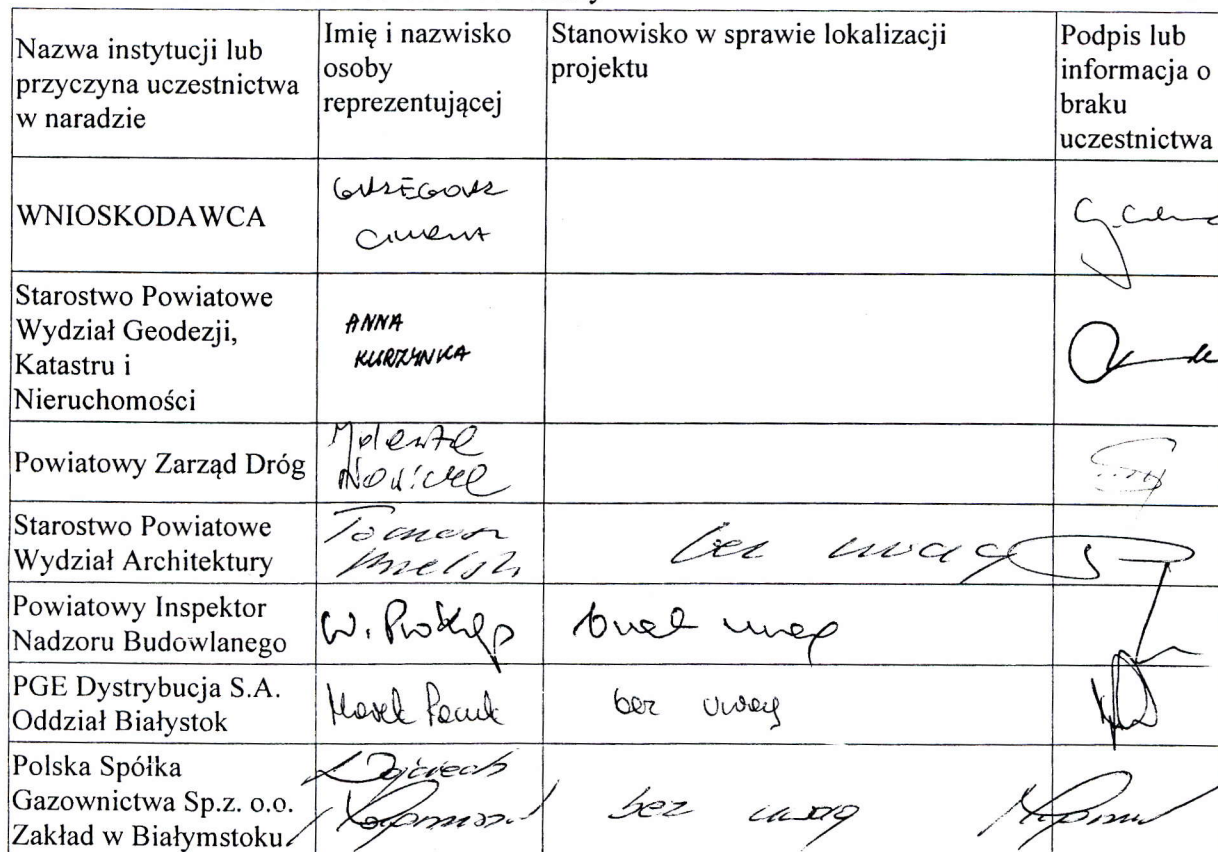 Nazwa instytucji lub
przyczyna uczestnictwa
w naradzie
Imię i nazwisko
osoby
reprezentującej
Stanowisko w sprawie lokalizacji
projektu
Podpis lub
informacja o
braku
uczestnictwa
WNIOSKODAWCA
GRZEGORZ
Starostwo Powiatowe
Wydział Geodezji,
Katastru i
Nieruchomości
ANNA
KURZYNKA
Powiatowy Zarząd Dróg
Starostwo Powiatowe
Wydział Architektury
Tomasz
bez uwag
Powiatowy Inspektor
Nadzoru Budowlanego
W. Prokop
brak uwag
PGE Dystrybucja S.A.
Oddział Białystok
Marek
bez uwag
Polska Spółka
Gazownictwa Sp.z. o.o.
Zakład w Białymstoku
Wojciech
bez uwag